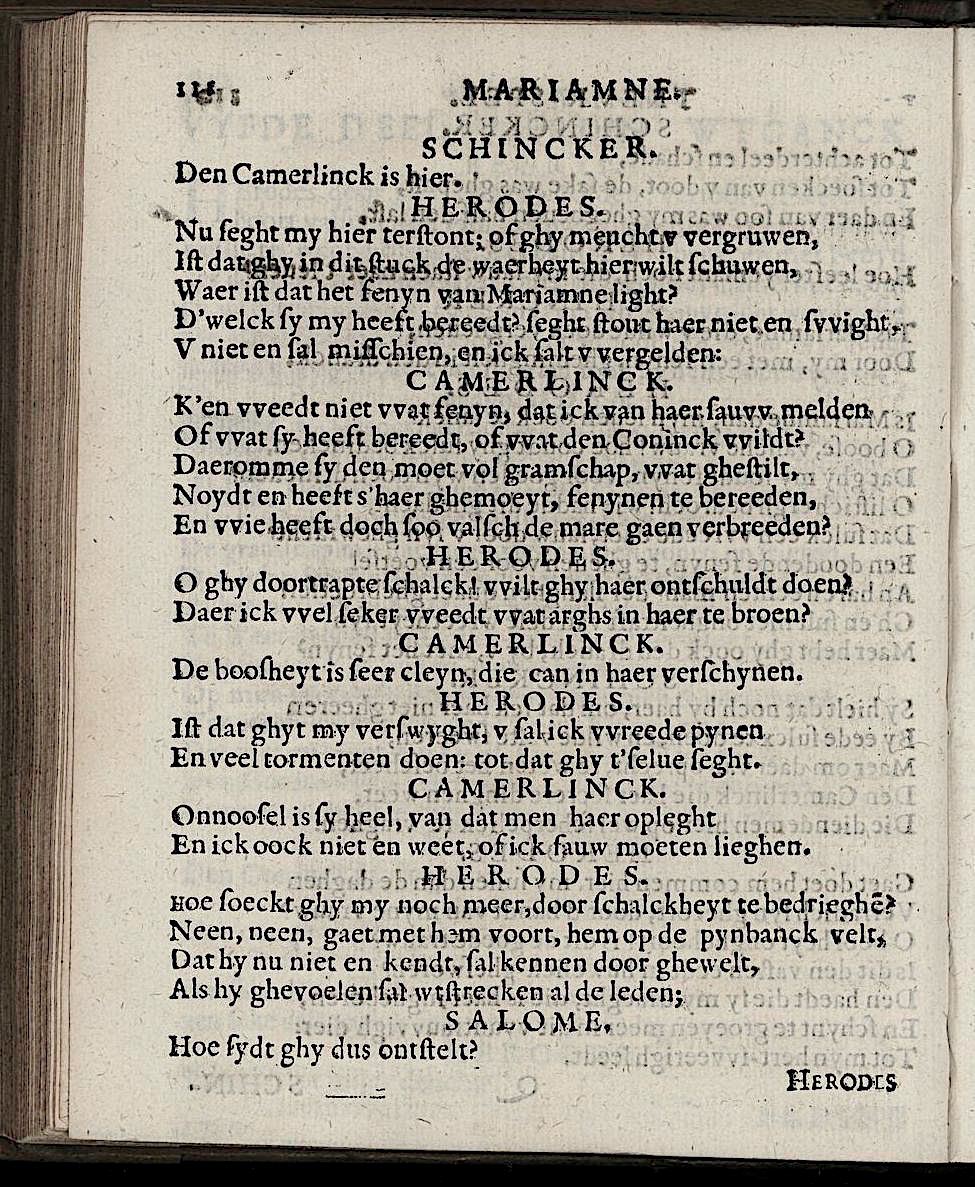 MARIAMNE.
SCHINCKER.
Den Camerlinck is hier.
HERODES.
Nu ſeght my hier terſtont; of ghy mencht v vergruwen,
Iſt dat ghy in dit ſtuck de waerheyt hier wilt ſchuwen,
Waer iſt dat het fenyn van Mariamne light?
D'welck ſy my heeft bereedt? ſeght ſtout haer niet en ſvvight,
V niet en ſal miſſchien, en ick ſalt v vergelden:
CAMERLINCK.
K'en vveedt niet vvat fenyn, dat ick van haer ſauvv melden
Of vvat ſy heeft bereedt, of vvat den Coninck vvildt?
Daeromme ſy den moet vol gramſchap, vvat gheſtilt,
Noydt en heeft s'haer ghemoeyt, fenynen te bereeden,
En vvie heeft doch ſoo valſch de mare gaen verbreeden?
HERODES.
O ghy doortrapte ſchalck! vvilt ghy haer ontſchuldt doen?
Daer ick vvel ſeker vveedt vvat arghs in haer te broen?
CAMERLINCK.
De booſheyt is ſeer cleyn, die can in haer verſchynen.
HERODES.
Iſt dat ghyt my verſwyght, v ſal ick vvreede pynen
En veel tormenten doen: tot dat ghy t'ſelue ſeght.
CAMERLINCK.
Onnooſel is ſy heel, van dat men haer opleght
En ick oock niet en weet, of ick ſauw moeten lieghen.
HERODES.
Hoe ſoeckt ghy my noch meer, door ſchalckheyt te bedrieghē?
Neen, neen, gaet met hem voort, hem op de pynbanck velt,
Dat hy nu niet en kendt, ſal kennen door ghewelt,
Als hy ghevoelen ſal wtſtrecken al de leden;
SALOME,
Hoe ſydt ghy dus ontſtelt?
HERODES